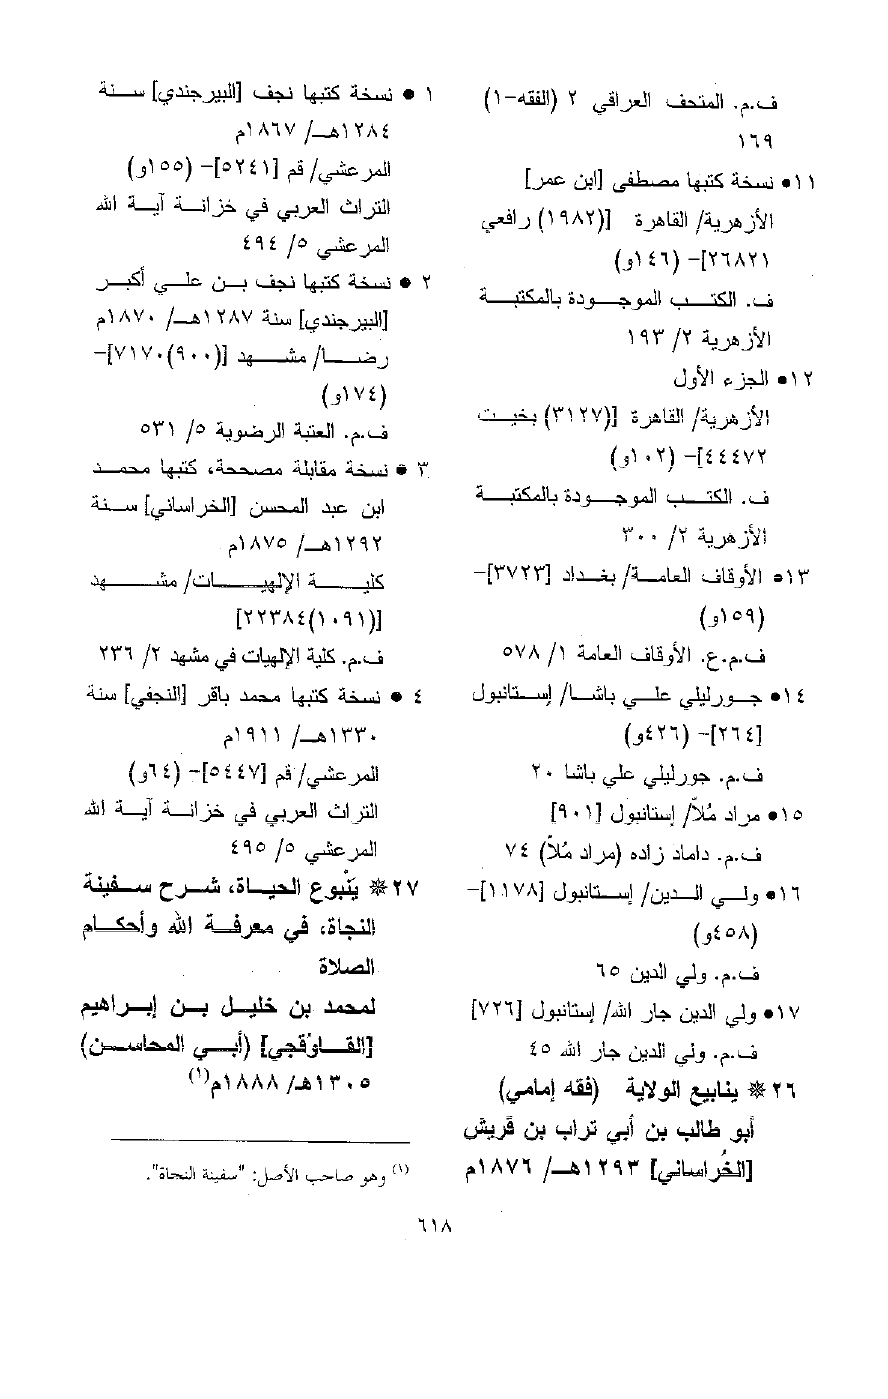 ف.م. المتحف العراقي ٢ (الفقه-١)
١٦٩
١١• نسخة كتبها مصطفى [ابن عمر]
الأزهرية/ القاهرة [(١٩٨٢) رافعي
٢٦٨٢١]- (١٤٦و)
ف. الكتـــب الموجـــودة بالمكتبـــة
الأزهرية ٢/ ١٩٣
١٢• الجزء الأول
الأزهرية/ القاهرة [(٣١٢٧) بخيـــت
٤٤٤٧٢]- (١٠٢و)
ف. الكتـــب الموجـــودة بالمكتبـــة
الأزهرية ٢/ ٣٠٠
١٣• الأوقاف العامـــة/ بغـــداد [٣٧٢٣]-
(١٥٩و)
ف.م.ع. الأوقاف العامة ١/ ٥٧٨
١٤• جـــورليلي علـــي باشـــا/ إســـتانبول
[٢٦٤]- (٤٢٦و)
ف.م. جورليلي علي باشا ٢٠
١٥• مراد مُلاّ/ إستانبول [٩٠١]
ف.م. داماد زاده (مراد مُلاّ) ٧٤
١٦• ولـــي الـــدين/ إســـتانبول [١١٧٨]-
(٤٥٨و)
ف.م. ولي الدين ٦٥
١٧• ولي الدين جار الله/ إستانبول [٧٢٦]
ف.م. ولي الدين جار الله ٤٥
٢٦ ※ ينابيع الولاية (فقه إمامي)
أبو طالب بن أبي تراب بن قريش
[الخُراساني] ١٢٩٣هـــ/ ١٨٧٦م
١ • نسخة كتبها نجف [البيرجندي] ســـنة
١٢٨٤هـــ/ ١٨٦٧م
المرعشي/ قم [٥٢٤١]- (١٥٥و)
التراث العربي في خزانـــة آيـــة الله
المرعشي ٥/ ٤٩٤
٢ • نسخة كتبها نجف بـــن علـــي أكبـــر
[البيرجندي] سنة ١٢٨٧هـــ/ ١٨٧٠م
رضـــا/ مشـــهد [(٩٠٠)٧١٧٠]-
(١٧٤و)
ف.م. العتبة الرضوية ٥/ ٥٣١
٣ • نسخة مقابلة مصححة، كتبها محمـــد
ابن عبد المحسن [الخراساني] ســـنة
١٢٩٢هـــ/ ١٨٧٥م
كليـــة الإلهيـــات/ مشـــهد
[(١٠٩١)٢٢٣٨٤]
ف.م. كلية الإلهيات في مشهد ٢/ ٢٣٦
٤ • نسخة كتبها محمد باقر [النجفي] سنة
١٣٣٠هـــ/ ١٩١١م
المرعشي/ قم [٥٤٤٧]- (٦٤و)
التراث العربي في خزانـــة آيـــة الله
المرعشي ٥/ ٤٩٥
٢٧ ※ يَنْبوع الحيـــاة، شـــرح ســـفينة
النجاة، في معرفـــة الله وأحكـــام
الصلاة
لمحمد بن خليـــل بـــن إبـــراهيم
[القـــاوُقجي] (أبـــي المحاســـن)
١٣٠٥هـ/ ١٨٨٨م(١)
(١) وهو صاحب الأصل: "سفينة النجاة".
٦١٨